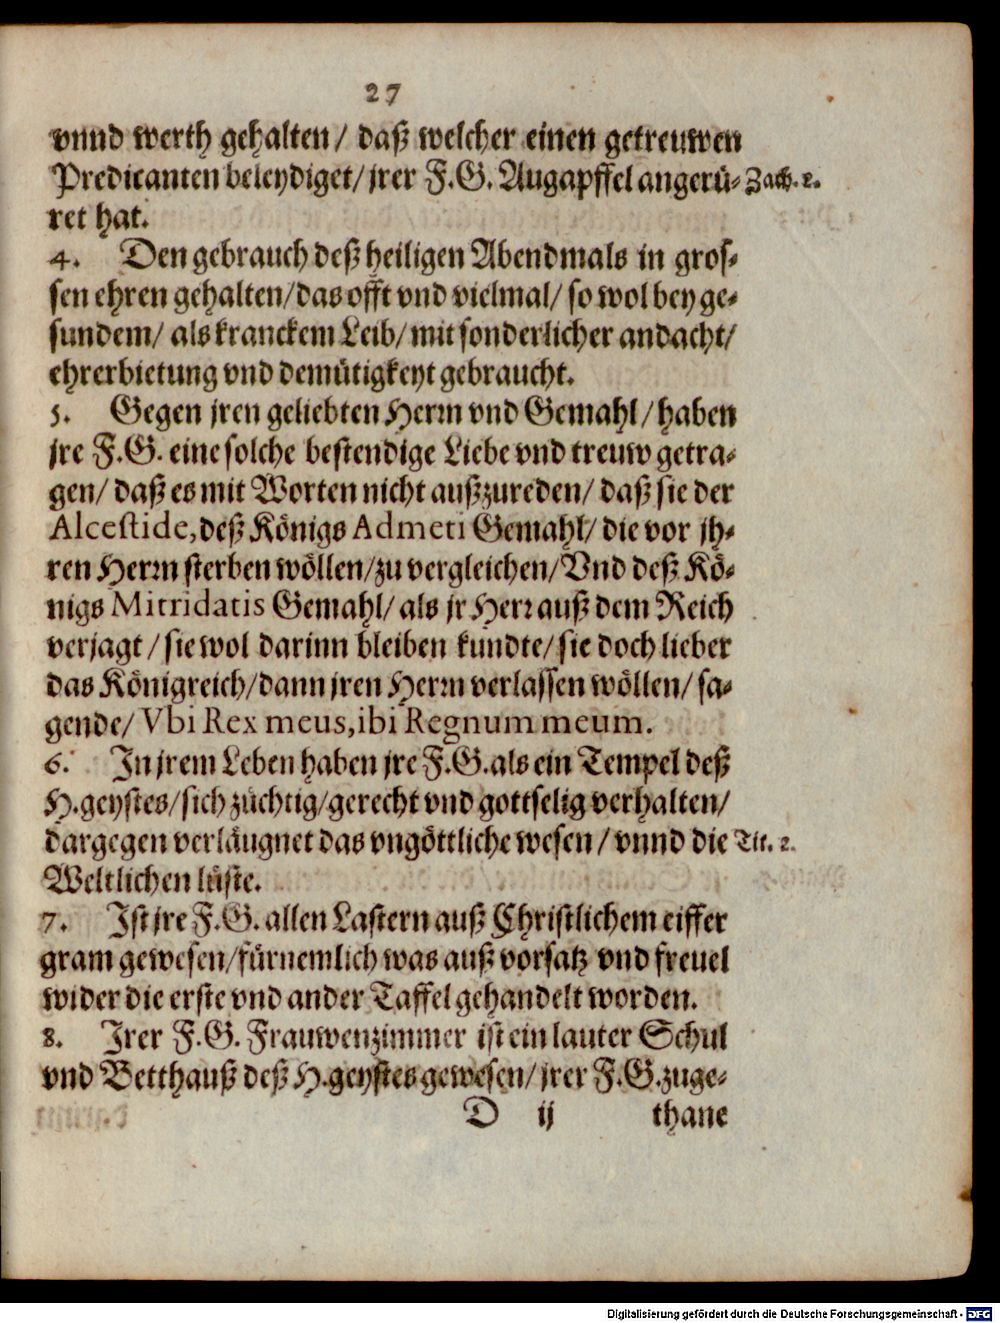 27
vnnd werth gehalten/ daß welcher einen getreuwen
Predicanten beleydiget/ jrer F.G. Augapffel angerü- Zach. 2.
ret hat.
4. Den gebrauch deß heiligen Abendmals in gros-
sen ehren gehalten/ das offt vnd vielmal/ so wol bey ge-
sundem/ als kranckem Leib/ mit sonderlicher andacht/
ehrerbietung vnd demütigkeyt gebraucht.
5. Gegen jren geliebten Herrn vnd Gemahl/ haben
jre F.G. eine solche bestendige Liebe vnd treuw getra-
gen/ daß es mit Worten nicht außzureden/ daß sie der
Alcestide, deß Königs Admeti Gemahl/ die vor jh-
ren Herrn sterben wöllen/ zu vergleichen/ Vnd deß Kö-
nigs Mitridatis Gemahl/ als jr Herr auß dem Reich
verjagt/ sie wol darinn bleiben kundte/ sie doch lieber
das Königreich/ dann jren Herrn verlassen wöllen/ sa-
gende/ Vbi Rex meus, ibi Regnum meum.
6. In jrem Leben haben jre F.G. als ein Tempel deß
H. geystes/ sich züchtig/ gerecht vnd gottselig verhalten/
dargegen verläugnet das vngöttliche wesen/ vnnd die Tit. 2.
Weltlichen lüste.
7. Ist jre F.G. allen Lastern auß Christlichem eiffer
gram gewesen/ fürnemlich was auß vorsatz vnd freuel
wider die erste vnd ander Taffel gehandelt worden.
8. Irer F.G. Frauwenzimmer ist ein lauter Schul
vnd Betthauß deß H. geystes gewesen/ jrer F.G. zuge-
D ij thane
Digitalisierung gefördert durch die Deutsche Forschungsgemeinschaft - DFG